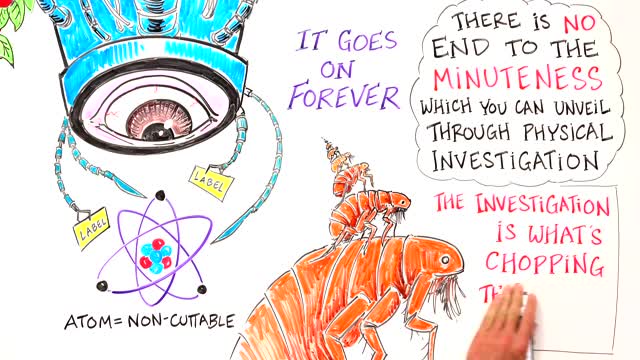 IT GOES
ON
FOREVER
THERE IS NO
END TO THE
MINUTENESS
WHICH YOU CAN UNVEIL
THROUGH PHYSICAL
INVESTIGATION
LABEL
LABEL
ATOM = NON-CUTTABLE
THE INVESTIGATION
IS WHAT'S
CHOPPING